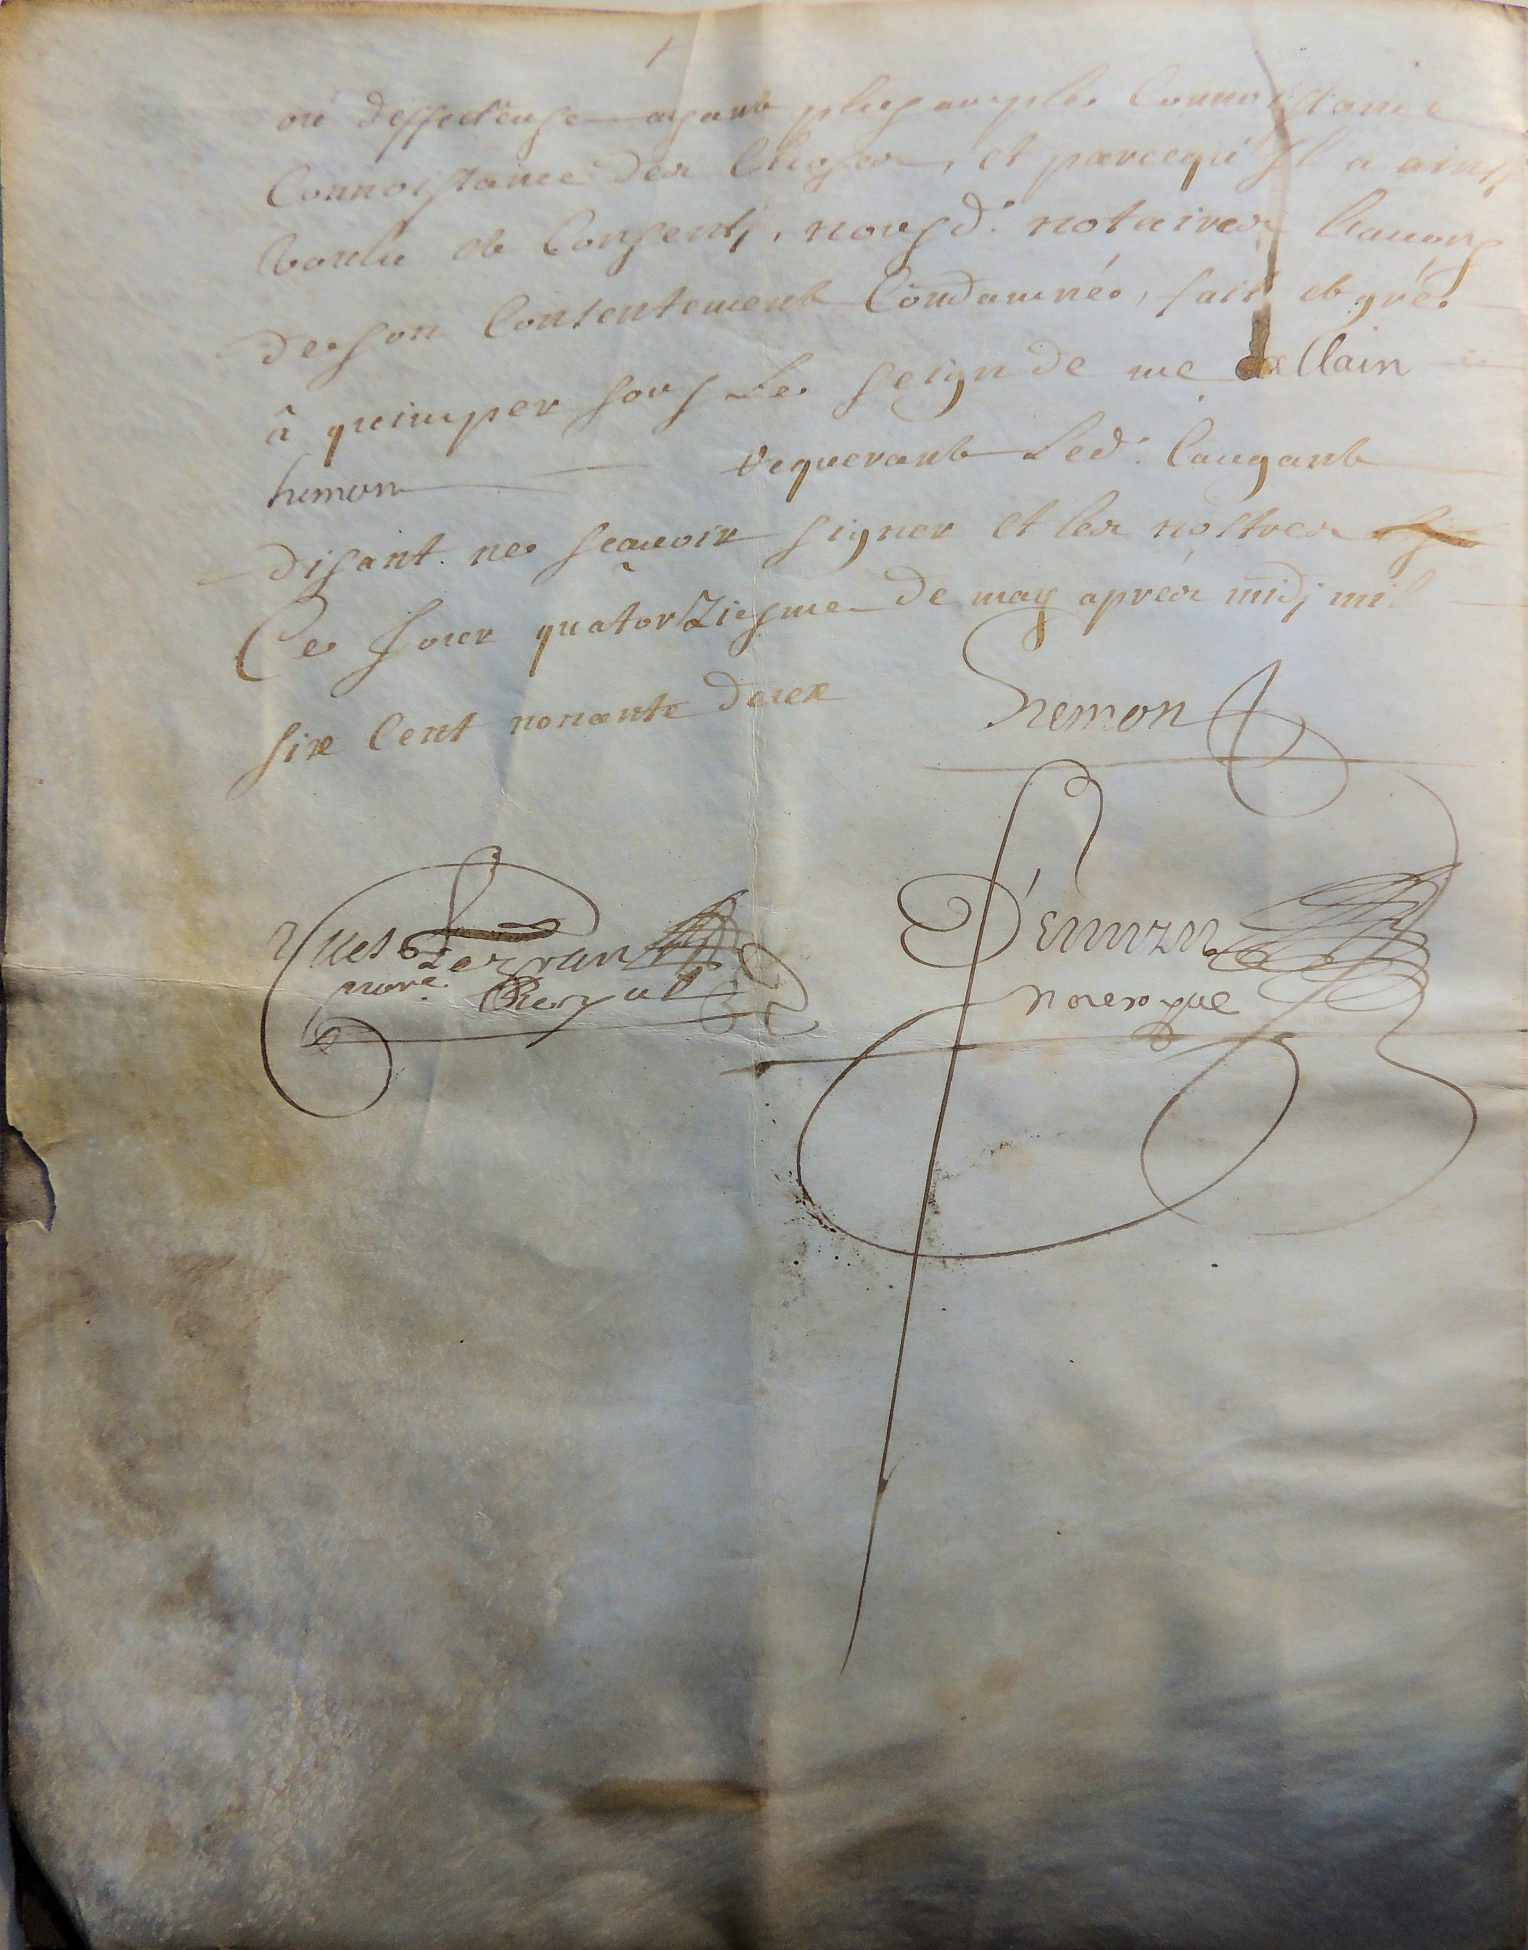 ou deffecteuse ayant plus ample Connoissance
Connoissance des Choses, et parcequ'Il a ainsy
voulu et Consenty, nousd. notaires L'auons
de son Consentement Condamné, fait et gréé
â quimper sous Le seign de me allain
hemon requerant Led. Caugant
disant ne scauoir signer et les nostres
Ce Jour quatorziesme de may apres midj mil
six Cent nonante deux
hemon
yues
nore Royal
nore royal